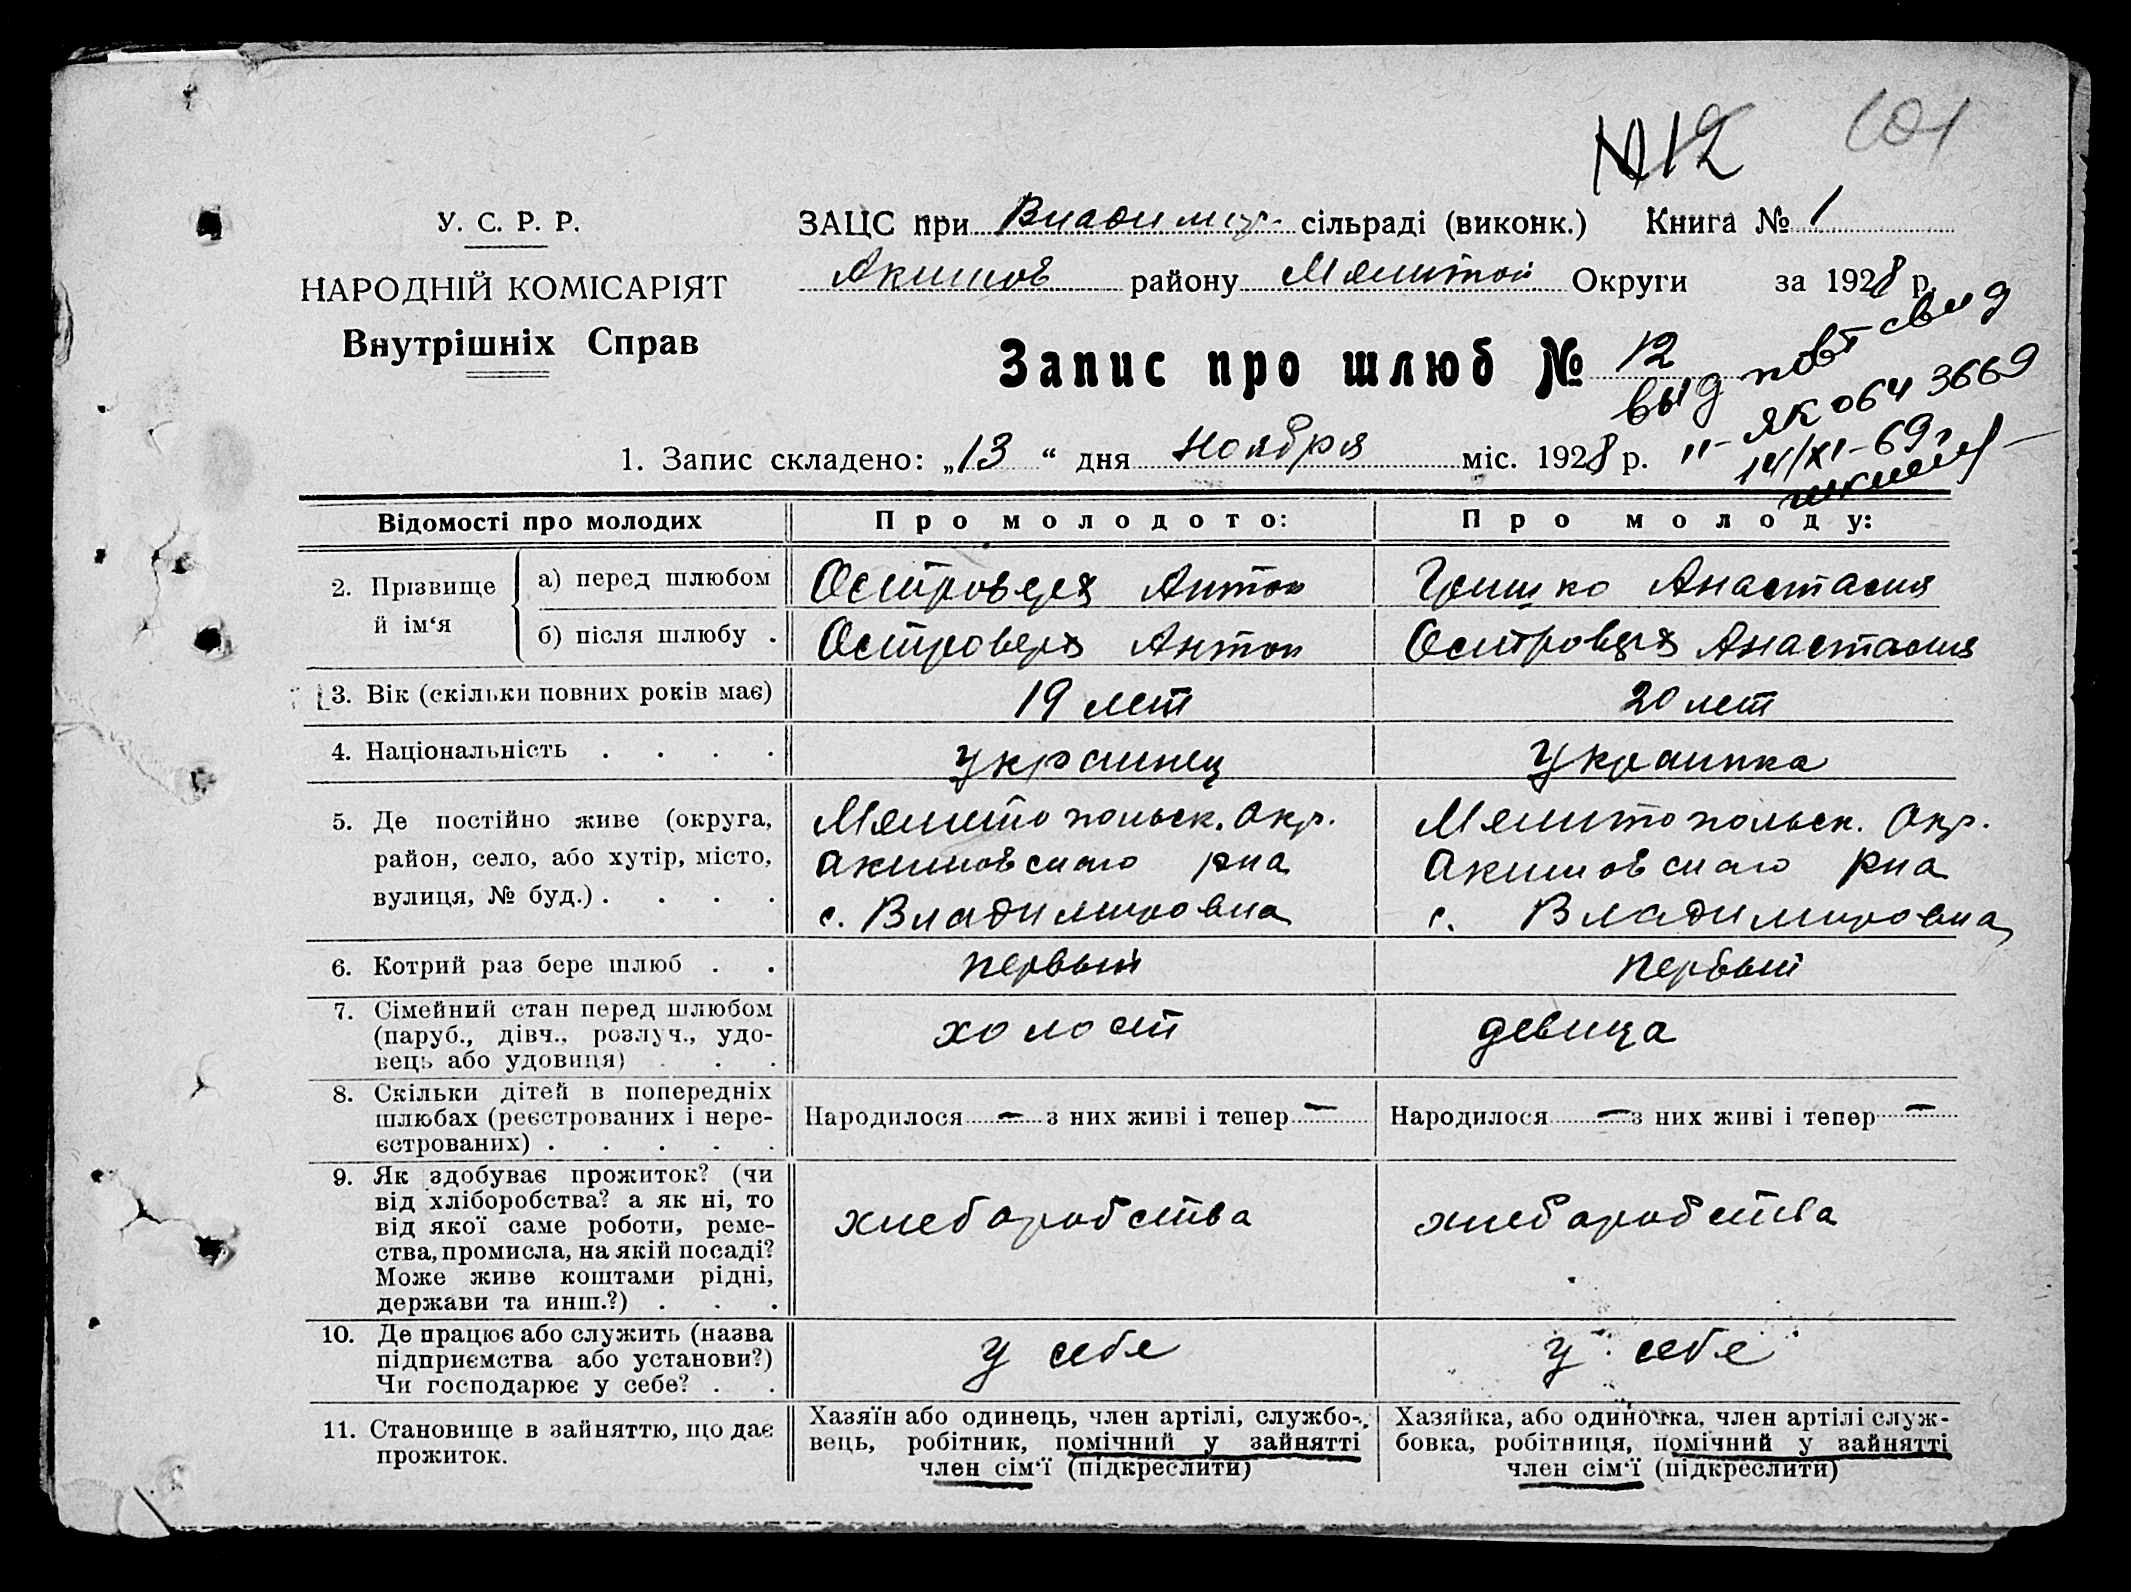 № 12 101
У. С. Р. Р.
НАРОДНІЙ КОМІСАРІЯТ
Внутрішніх Справ
ЗАЦС при Владимир. сільраді (виконк.) Книга № 1
Акимов району Мелитоп Округи за 1928 р.
Запис про шлюб № 12
выд повт свид
ЯК 064 3669
14/XI-69г
1. Запис складено: „13“ дня Ноября міс. 1928 р.
Відомості про молодих Про молодого: Про молоду:
2. Прізвище й ім‘я
а) перед шлюбом Островерх Антон Гришко Анастасия
б) після шлюбу . Островерх Антон Островерх Анастасия
3. Вік (скільки повних років має) 19 лет 20 лет
4. Національність . . . . украинец Украинка
5. Де постійно живе (округа, Мелитопольск. Окр. Мелитопольск. Окр.
район, село, або хутір, місто, Акимовского рна Акимовского рна
вулиця, № буд.) . . . . с. Владимировка с. Владимировка
6. Котрий раз бере шлюб . . первый первый
7. Сімейний стан перед шлюбом
(паруб., дівч., розлуч., удо- холост девица
вець або удовиця) . . .
8. Скільки дітей в попередніх
шлюбах (реєстрованих і нере- Народилося — з них живі і тепер — Народилося — з них живі і тепер —
єстрованих) . . . . .
9. Як здобуває прожиток? (чи
від хліборобства? а як ні, то
від якої саме роботи, реме- хлеборобства хлеборобства
ства, промисла, на якій посаді?
Може живе коштами рідні,
держави та инш.?) . . .
10. Де працює або служить (назва
підприємства або установи?) у себе у себе
Чи господарює у себе? . .
11. Становище в зайняттю, що дає
прожиток.
Хазяїн або одинець, член артілі, службо-
вець, робітник, помічний у зайнятті
член сім‘ї (підкреслити)
Хазяйка, або одиночка, член артілі служ-
бовка, робітниця, помічний у зайнятті
член сім‘ї (підкреслити)